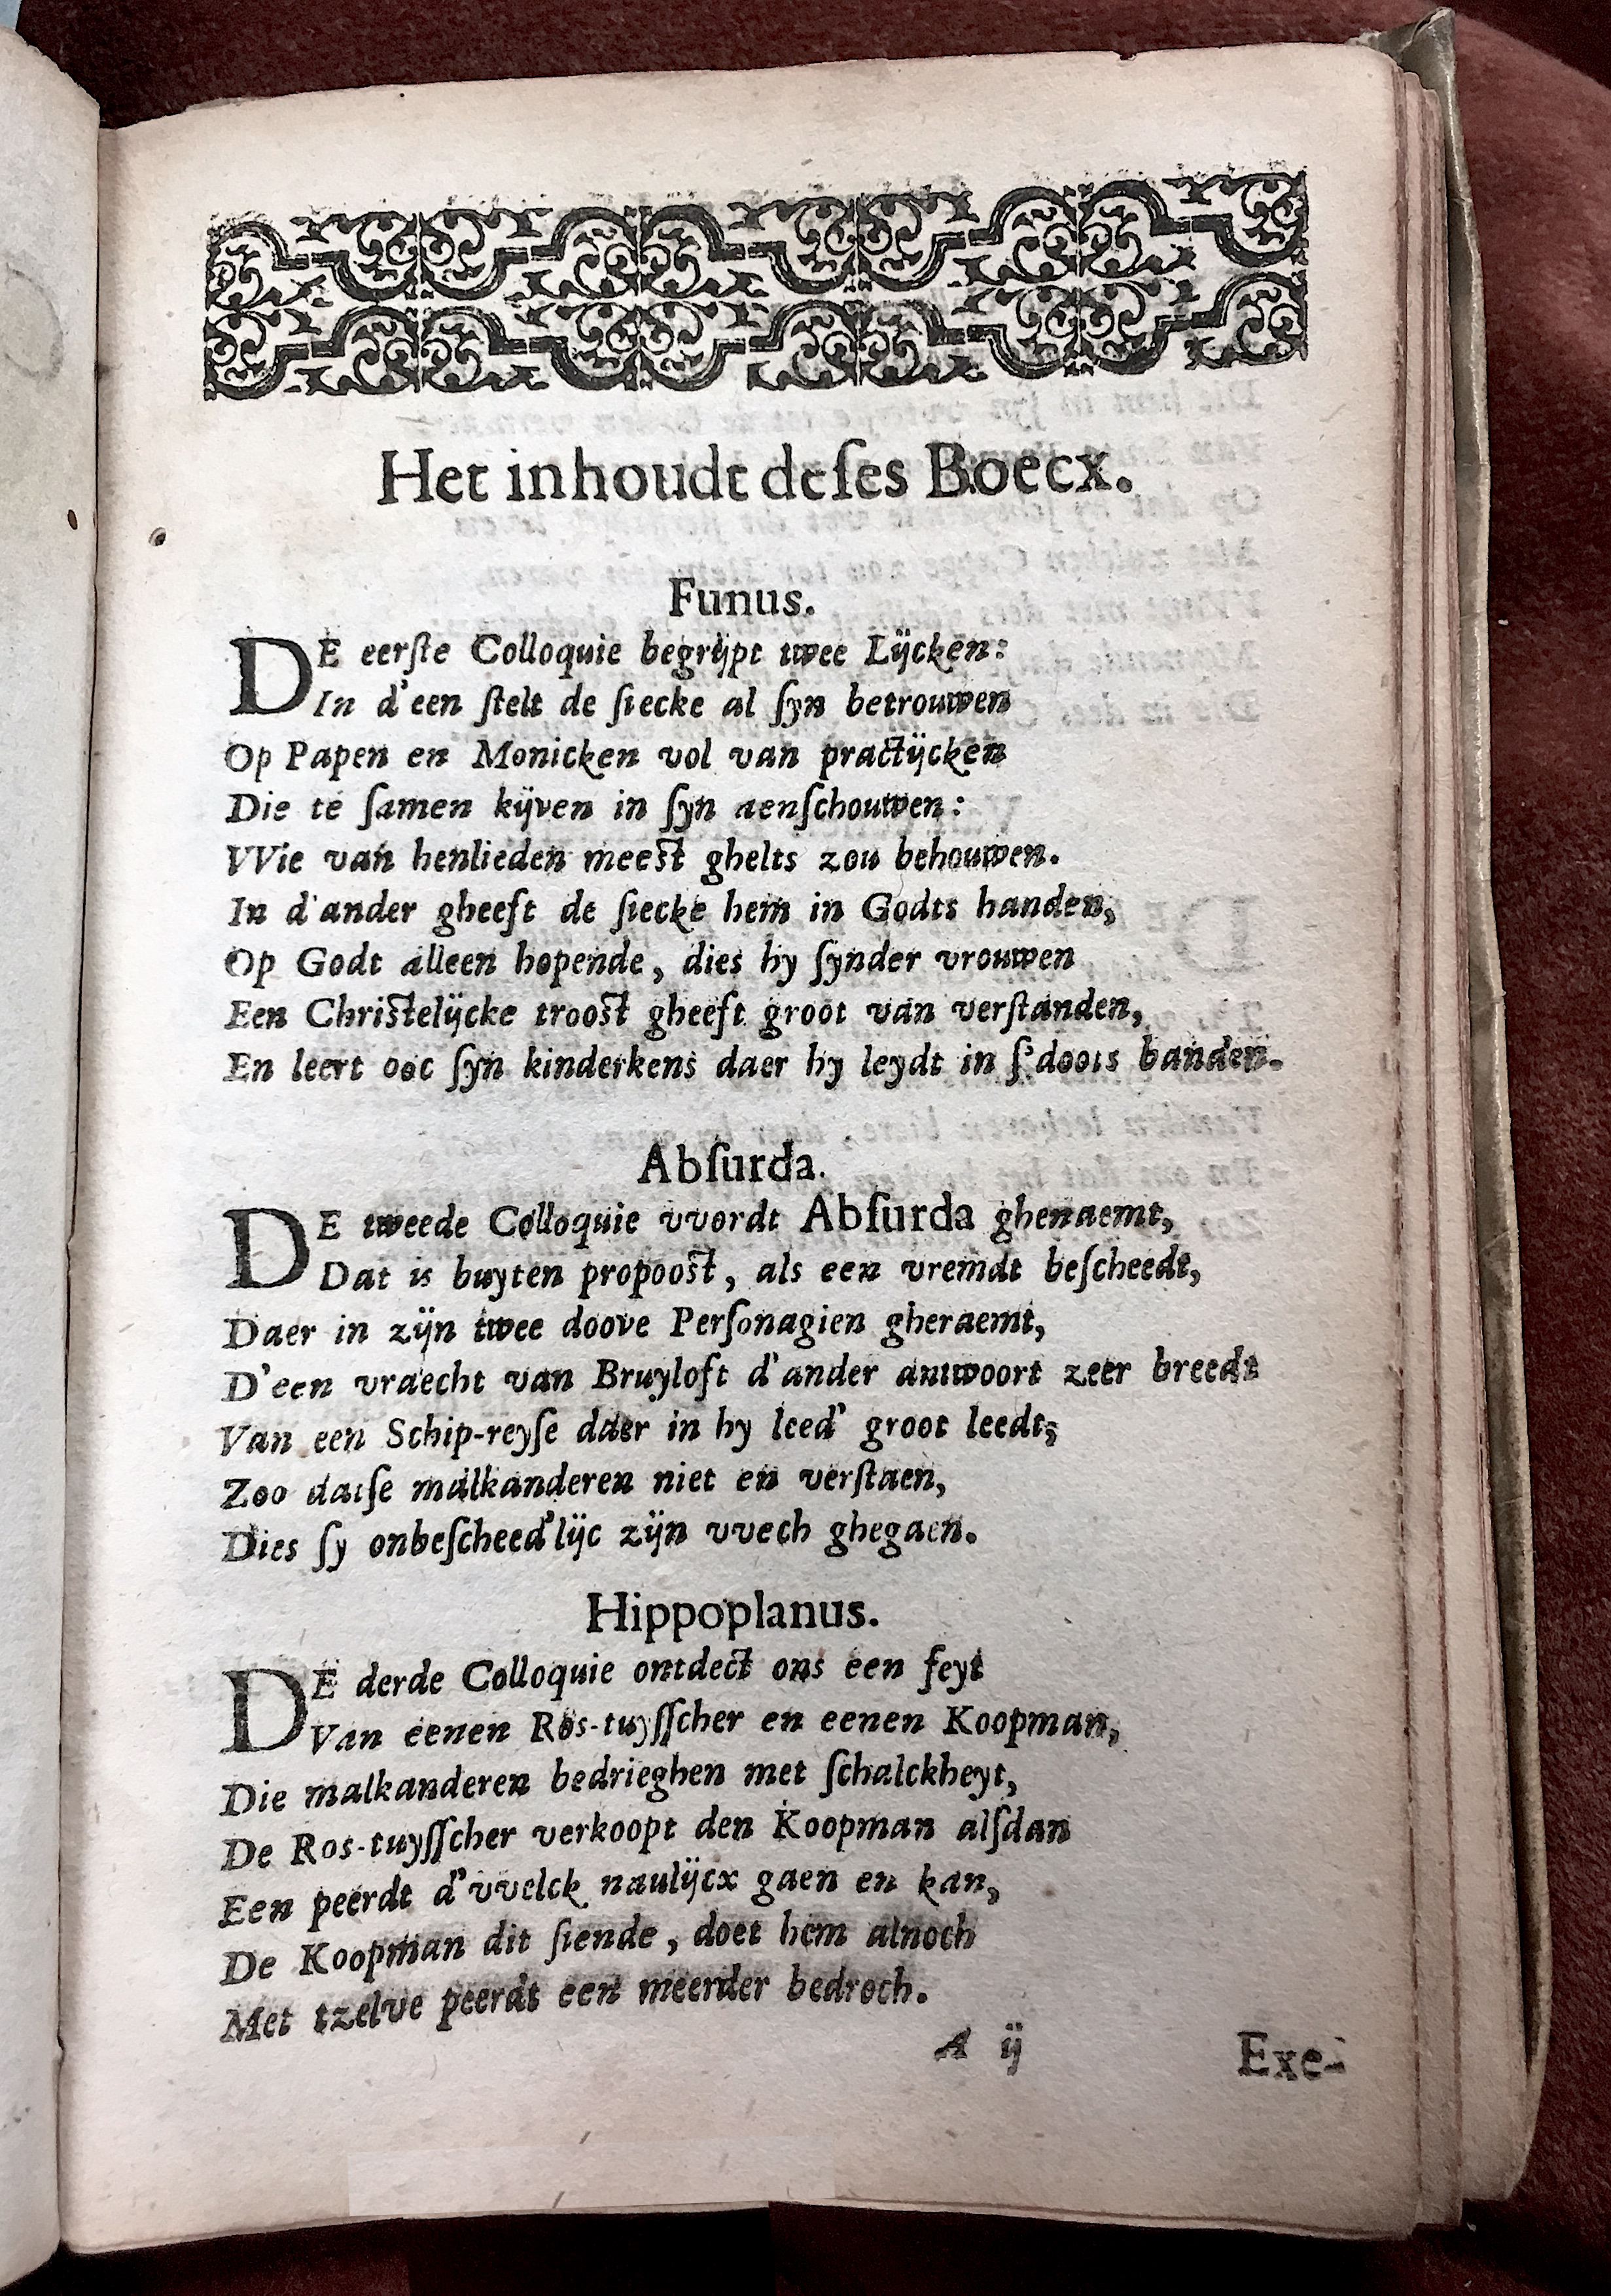 Het inhoudt deſes Boecx.
Funus.
DE eerſte Colloquie begrijpt twee Lijcken:
In d'een ſtelt de ſiecke al ſyn betrouwen
Op Papen en Monicken vol van practijcken
Die te ſamen kijven in ſyn aenſchouwen:
VVie van henlieden meest ghelts zou behouwen.
In d'ander gheeft de ſiecke hem in Godts handen,
Op Godt alleen hopende, dies hy ſynder vrouwen
Een Christelijcke troost gheeft groot van verſtanden,
En leert ooc ſyn kinderkens daer hy leydt in ſ'doots banden.
Abſurda.
DE tweede Colloquie vvordt Abſurda ghenaemt,
Dat is buyten propoost, als een vremdt beſcheedt,
Daer in zijn twee doove Perſonagien gheraemt,
D'een vraecht van Bruyloft d'ander antwoort zeer breedt
Van een Schip-reyſe daer in hy leed' groot leedt;
Zoo datſe malkanderen niet en verſtaen,
Dies ſy onbeſcheed'lijc zijn vvech ghegaen.
Hippoplanus.
DE derde Colloquie ontdect ons een feyt
Van eenen Ros-tuyſſcher en eenen Koopman,
Die malkanderen bedrieghen met ſchalckheyt,
De Ros-tuyſſcher verkoopt den Koopman alſdan
Een peerdt d'vvelck naulijcx gaen en kan,
De Koopman dit ſiende, doet hem alnoch
Met tzelve peerdt een meerder bedroch.
A ij
Exe-